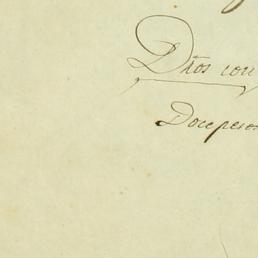 Dños con
Doce pesos